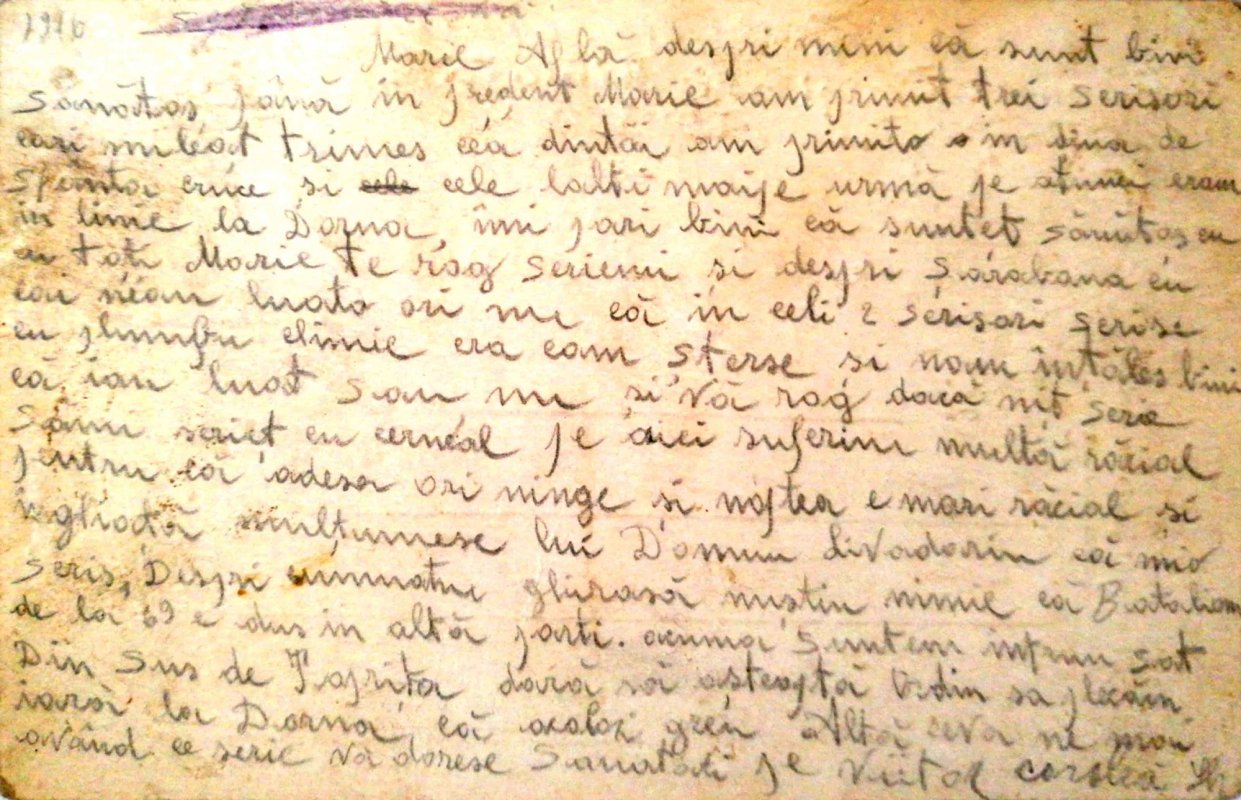 1916
Marie Află despri mini că sunt bini
sănătos până in prezent Marie am primit trei scrisori
cari mileat trimes cea dintăi am primito in ziua de
Sfinta cruce si cele lalti maipe urmă pe atunci eram
in linie la Dorna, imi pari bini că suntet sănătos cu
cu toti Marie te rog scriemi si despri Sarabana cu
că in celi 2 scrisori scrise
cu plumbu clinic era cam sterse si noam intăles bini
că iau luat sau nu si vă rog dacă mit scrie
sămi scriet cu cerneal pe aici suferim multă răcial
pentru că adesa ori ninge si noptea e mari răcial si
inghiată mulțumesc lui Domnu că mio
scris, Despri cumnatu ghirasă nustiu nimic că Batalion
de la 69 e dus in altă parti. acuma suntem intrun sat
Din sus de dară să asteaptă Ordin sa plecăm
iară la Dorna, că acoloi greu Altă ceva ne mai
avănd ce scrie vă doresc Sanatati pe viitor